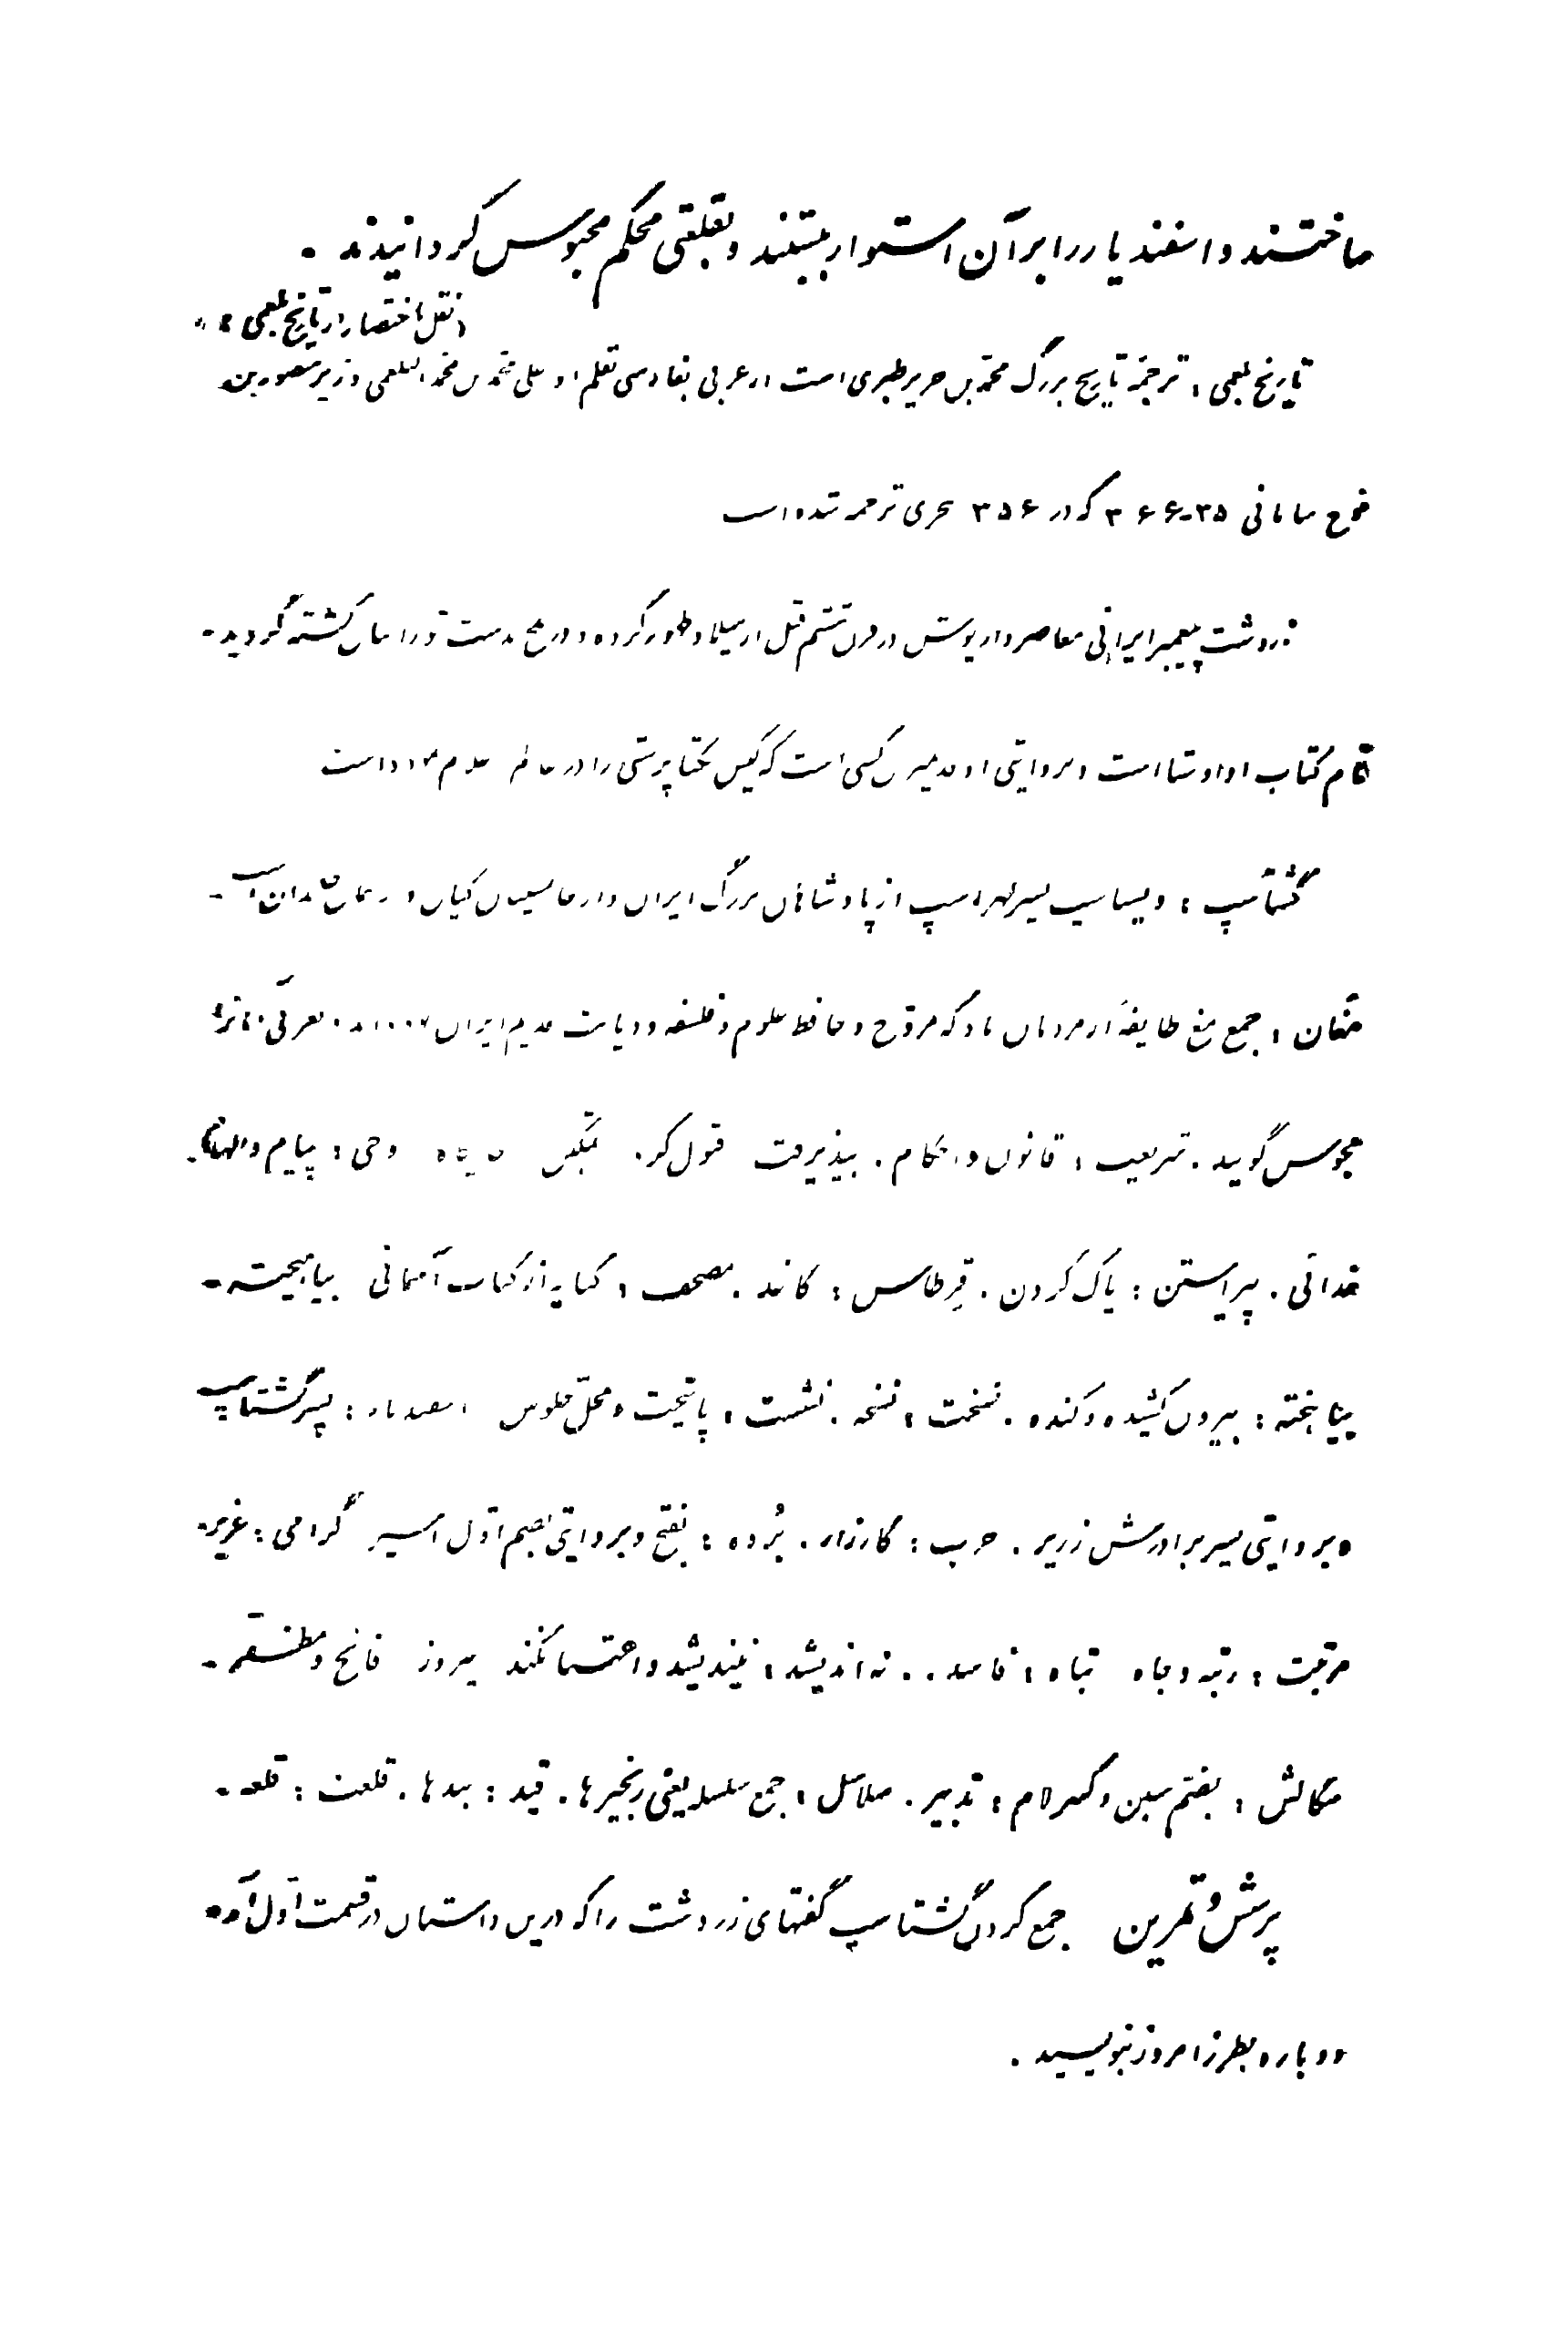 ساختند و اسفندیار را بر آن استوار ببستند و بقلعتی محکم محبوس گردانیدند .
« نقل باختصار از تاریخ بلعمی »
تاریخ بلعمی : ترجمهٔ تاریخ بزرگ محمّد بن جریر طبری است از عربی بفارسی بقلم ابو علی محمّد بن محمّد البلعمی وزیر منصور بن
نوح سامانی ۳۵۰-۳۶۶ که در ۳۵۶ هجری ترجمه شده است
زردشت پیغمبر ایرانی معاصر داریوش در قرن ششم قبل از میلاد ظهور کرده و در بلخ بدست تورانیان کشته گردید .
نام کتاب او اوستا است و بروایتی او قدیمترین کسی است که کیش یکتا پرستی را در داشت
گشتاسپ : ویستاسپ پسر لهراسپ از پادشاهان بزرگ ایران و از
مغان : جمع مغ طایفهٔ از مردمان ماد که مروّج و حافظ علوم و فلسفه و دیانت قدیم ایران بعربی آنانرا
مجوس گویند . شریعت : قانون و احکام . بپذیرفت قبول کرد . وحی : پیام و الهام
خدائی . پیراستن : پاک کردن . قرطاس : کاغذ . مصحف : کنایه از کتاب آسمانی بیاهیخته .
بیاهیخته : بیرون کشیده و کنده . نسخت : نسخه . نشست : پایتخت و محلّ جلوس اسفندیار : پسر گشتاسپ
و بروایتی پسر برادرش زریر . حرب : کارزار . بَرده : بفتح و بروایتی بضم اوّل اسیر گرامی : عزیز .
مرتبت : رتبه و جاه تباه : فاسد . . نه اندیشد : نیندیشد و اعتنا نکند پیروز فاتح و مظفّر .
سگالش : بضمّ سین و کسر لام : تدبیر . سلاسل : جمع سلسله یعنی زنجیرها . قید : بندها . قلعت : قلعه .
پرسش و تمرین جمع کردن گشتاسپ گفتهای زردشت را که درین داستان در قسمت اوّل آمده
دوباره بطرز امروز بنویسید .